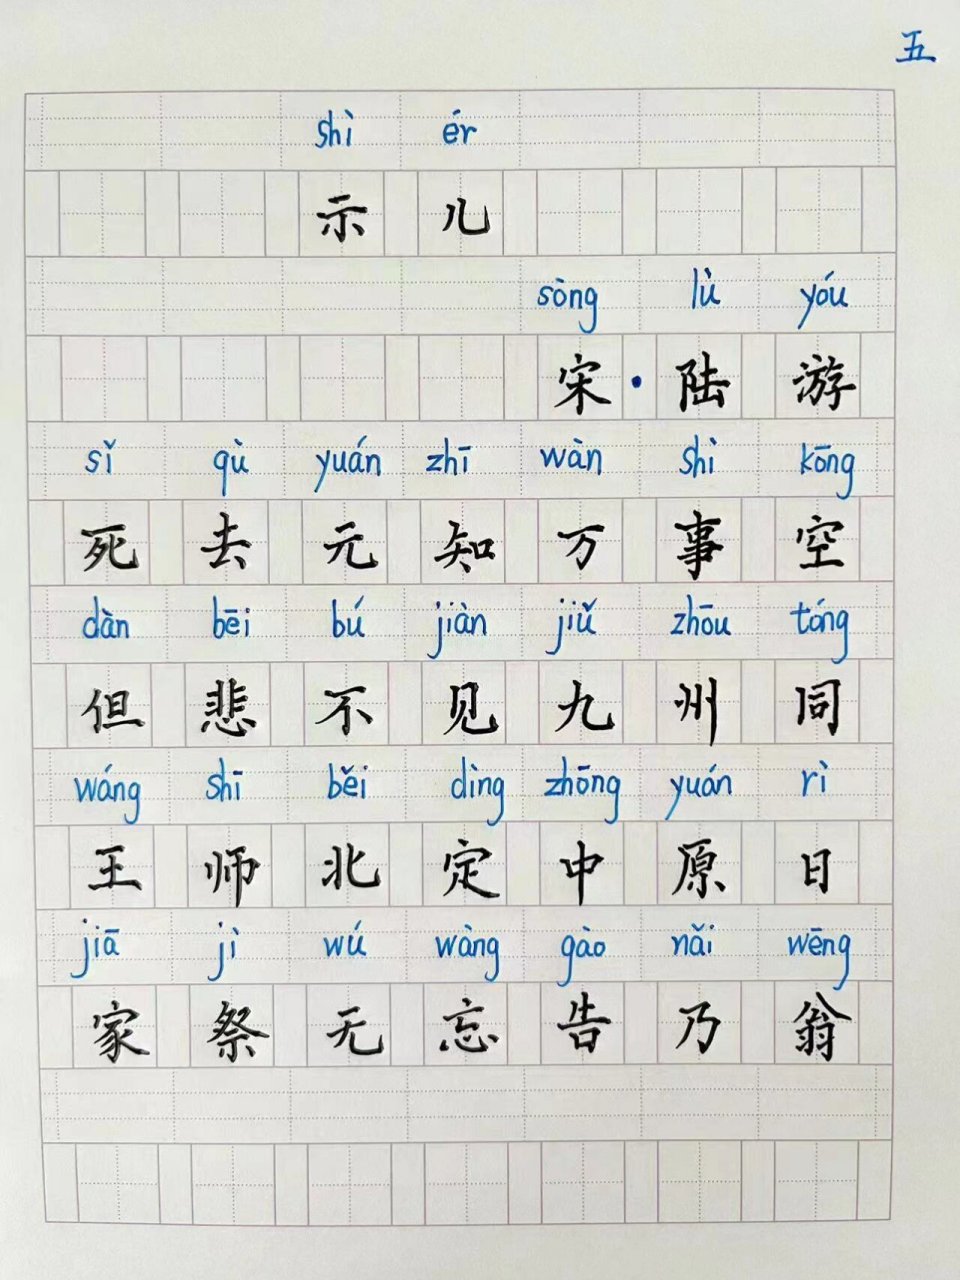 五
shì ér
示儿
sòng lù yóu
宋·陆游
sǐ qù yuán zhī wàn shì kōng
死去元知万事空
dàn bēi bú jiàn jiǔ zhōu tóng
但悲不见九州同
wáng shī běi dìng zhōng yuán rì
王师北定中原日
jiā jì wú wàng gào nǎi wēng
家祭无忘告乃翁